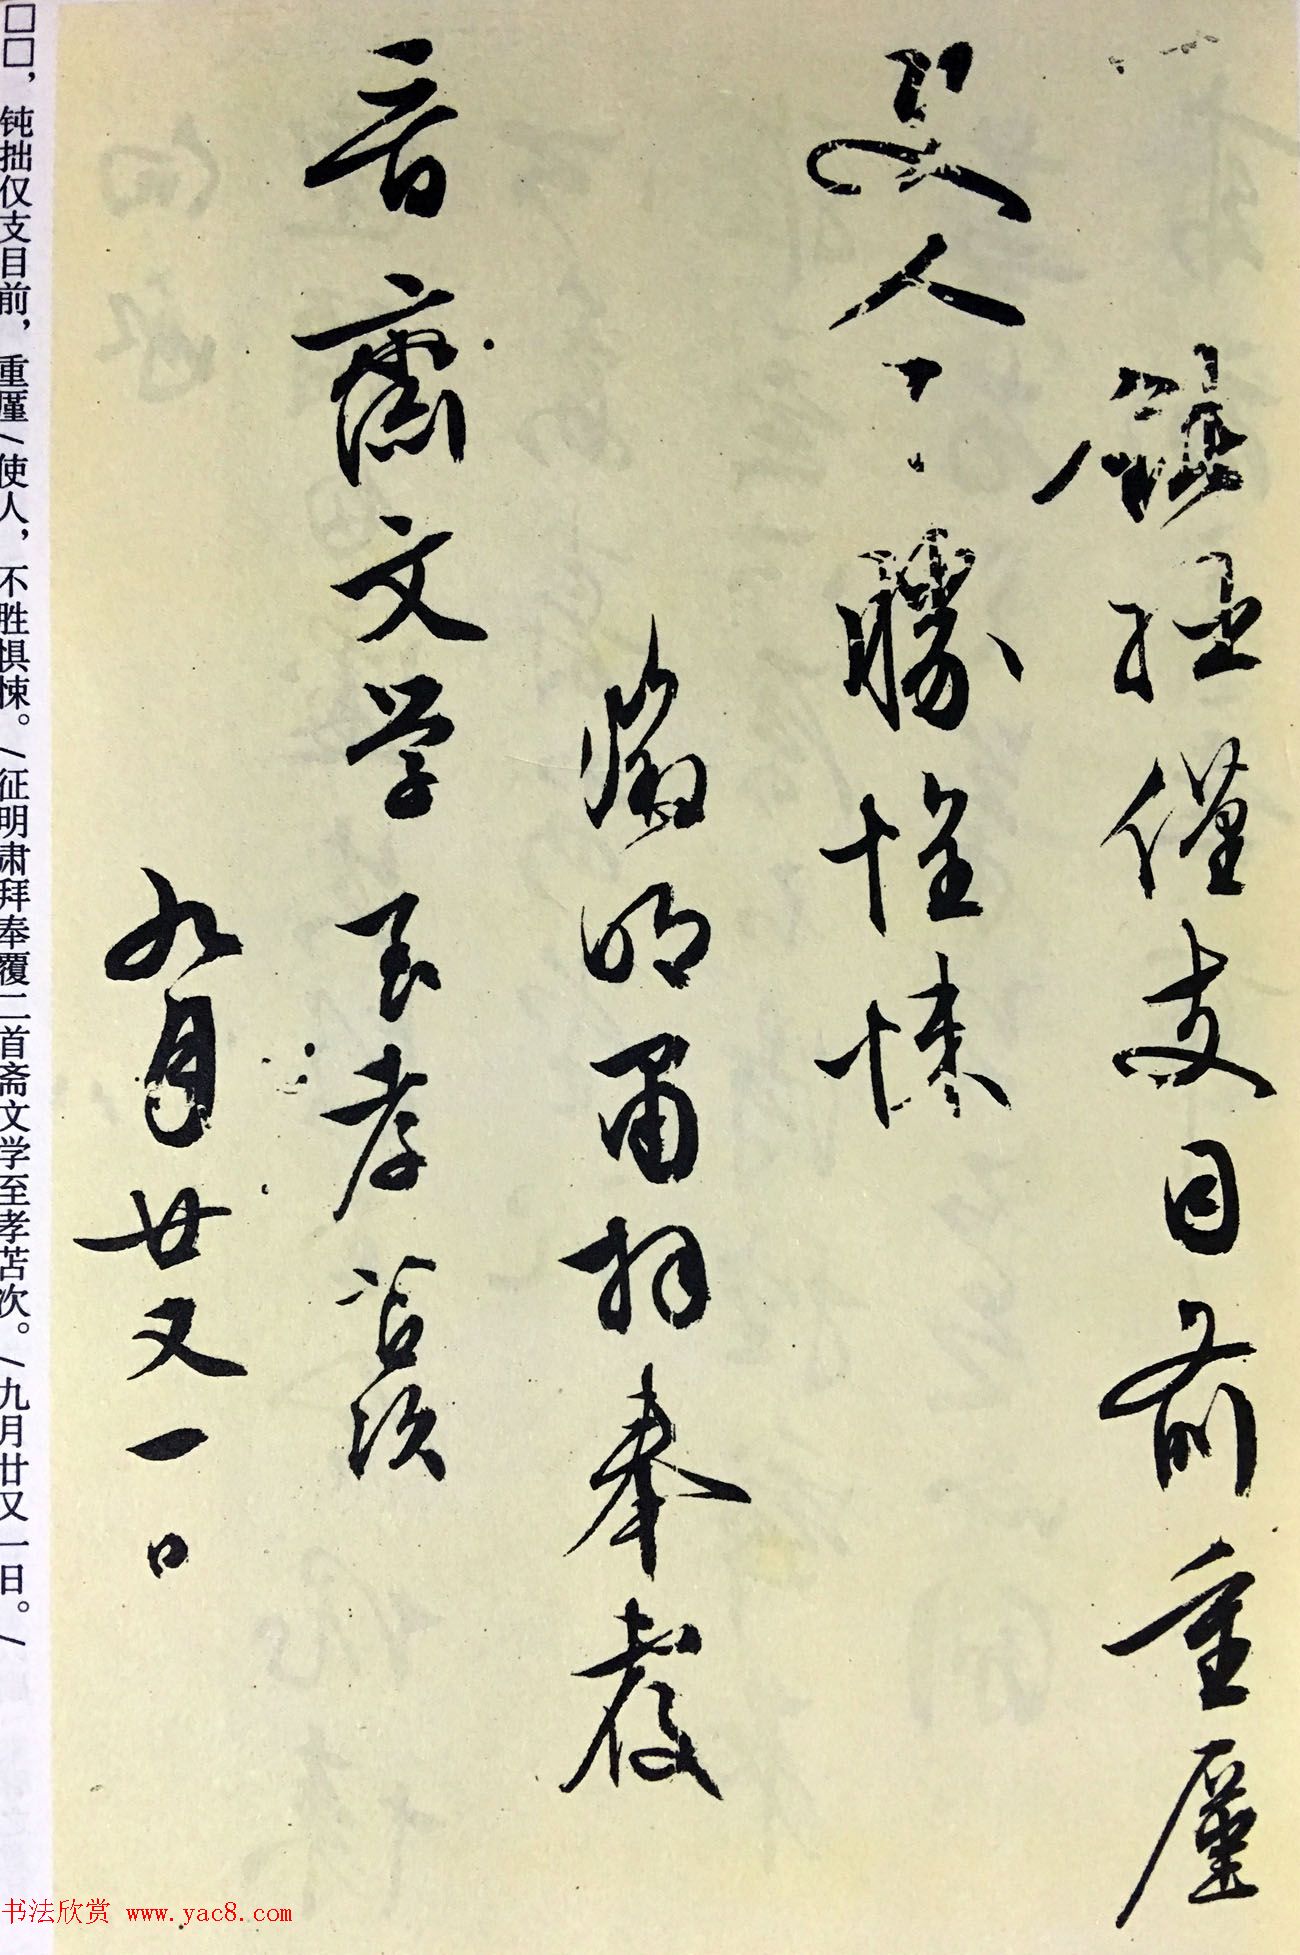 鈍拙僅支目前重廑
使人不勝惶悚
徵明肅拜奉覆
二首齋文學至孝苫次
九月廿又一日
□□，钝拙仅支目前，重廑/使人，不胜惧悚。/征明肃拜奉覆二首斋文学至孝苫次。/九月廿又一日。/
书法欣赏 www.yac8.com